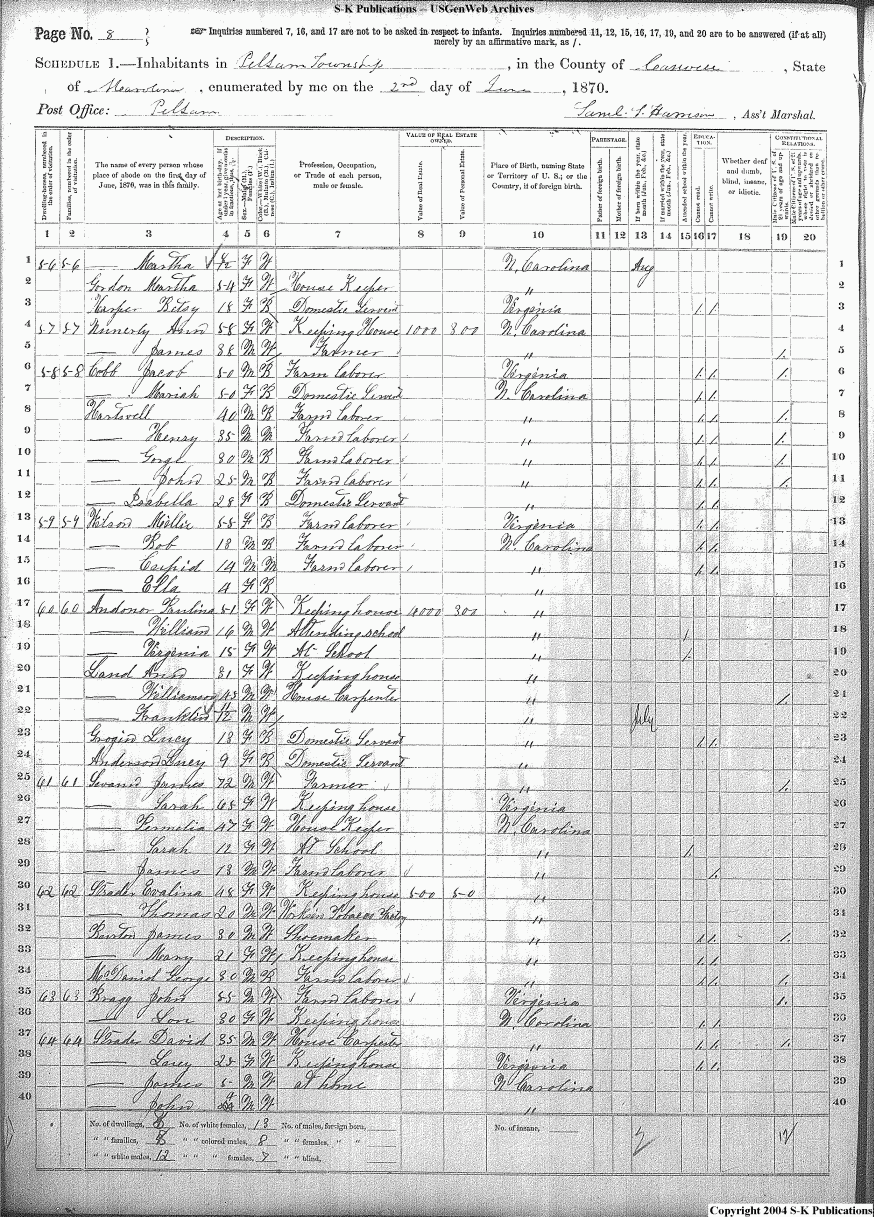 S-K Publications – USGenWeb Archives
Page No. 8
Inquiries numbered 7, 16, and 17 are not to be asked in respect to infants. Inquiries numbered 11, 12, 15, 16, 17, 19, and 20 are to be answered (if at all)
merely by an affirmative mark, as /.
SCHEDULE 1.—Inhabitants in Pelham Township, in the County of Caswell, State
of N Carolina, enumerated by me on the 2nd day of June, 1870.
Post Office: Pelham
Saml. T. Harrison, Ass't Marshal.
Dwelling-houses, numbered in the order of visitation.
Families, numbered in the order of visitation.
The name of every person whose place of abode on the first day of June, 1870, was in this family.
DESCRIPTION.
Profession, Occupation, or Trade of each person, male or female.
VALUE OF REAL ESTATE OWNED.
Value of Real Estate.
Value of Personal Estate.
Place of Birth, naming State or Territory of U. S.; or the Country, if of foreign birth.
PARENTAGE.
Father of foreign birth.
Mother of foreign birth.
If born within the year, state month (Jan., Feb., &c.)
If married within the year, state month (Jan., Feb., &c.)
Attended school within the year.
EDUCATION.
Cannot read.
Cannot write.
Whether deaf and dumb, blind, insane, or idiotic.
CONSTITUTIONAL RELATIONS.
1 2 3 4 5 6 7 8 9 10 11 12 13 14 15 16 17 18 19 20
1 56 56 — Martha F W N. Carolina Aug 1
2 Gordon Martha 54 F W House Keeper " 2
3 Harper Betsy 18 F B Domestic Servent Virginia / / 3
4 57 57 Nunerly Ann 58 F W Keeping House 1000 300 N. Carolina 4
5 — James 38 M W Farmer " / 5
6 58 58 Cobb Jacob 50 M B Farm laborer Virginia / / / 6
7 — Mariah 50 F B Domestic Servent N Carolina / / 7
8 Hartwell 40 M B Farm laborer " / / / 8
9 — Henry 35 M M Farm laborer " / / / 9
10 — Gorge 30 M B Farm laborer " / / / 10
11 — John 25 M B Farm laborer " / / / 11
12 — Isabella 28 F B Domestic Servant " / / 12
13 59 59 Millie 58 F B Farm laborer Virginia / / 13
14 — Bob 18 M B Farm laborer N. Carolina / / 14
15 — 14 M M Farm laborer " / / 15
16 — Ella 4 F B " 16
17 60 60 Paulina 51 F W Keeping house 4000 300 " 17
18 — William 16 M W Attending school " / 18
19 — Virginia 15 F W At School " / 19
20 Land Ann 31 F W Keeping house " 20
21 — Williamson 43 M W House Carpenter " / 21
22 — Franklin 11/12 M W " July 22
23 Lucy 18 F B Domestic Servant " / / 23
24 Anderson Lucy 9 F B Domestic Servant " 24
25 61 61 James 72 M W Farmer " / 25
26 — Sarah 68 F W Keeping house Virginia 26
27 — Permelia 47 F W House Keeper N. Carolina 27
28 — Sarah 12 F W At School " / 28
29 — James 13 M W Farm laborer " / 29
30 62 62 Strader Evalina 48 F W Keeping house 500 50 " 30
31 — Thomas 20 M W Works in Tobacco Factory " 31
32 Burton James 30 M W Shoemaker " / / / 32
33 — Mary 21 F W Keeping house " / / 33
34 McDaniel George 30 M B Farm laborer " / / / 34
35 63 63 Bragg John 55 M W Farm laborer Virginia / 35
36 — 30 F W Keeping house N. Carolina / / 36
37 64 64 Strader David 35 M W House Carpenter " / / / 37
38 — Lucy 25 F W Keeping house Virginia / / 38
39 — James 5 M W at home N Carolina 39
40 — John M W " 40
No. of dwellings, 8 No. of white females, 13 No. of males, foreign born, No. of insane, 2 12
" " families, 8 " " colored males, 8 " " females, " "
" " white males, 12 " " " females, 7 " " blind,
Copyright 2004 S-K Publications